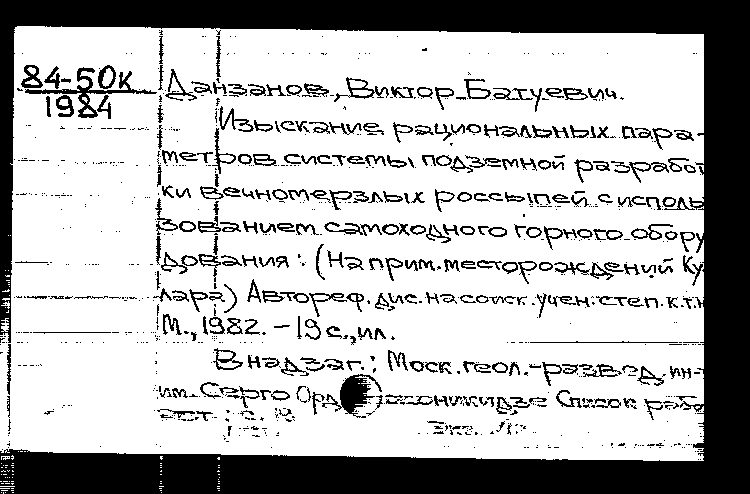 84-50к
1984
Данзанов, Виктор Батуевич.
Изыскание рациональных пара-
метров системы подземной разработ
ки вечномерзлых россыпей с исполь
зованием самоходного горного обору
дования: (На прим. месторождений Ку
лара) Автореф. дис. на соиск. учен. степ. к.т.н
М., 1982. - 19 с., ил.
В надзаг.: Моск. геол.-развед. ин-т
им. Серго Орд оникидзе Список рабо
с. 18